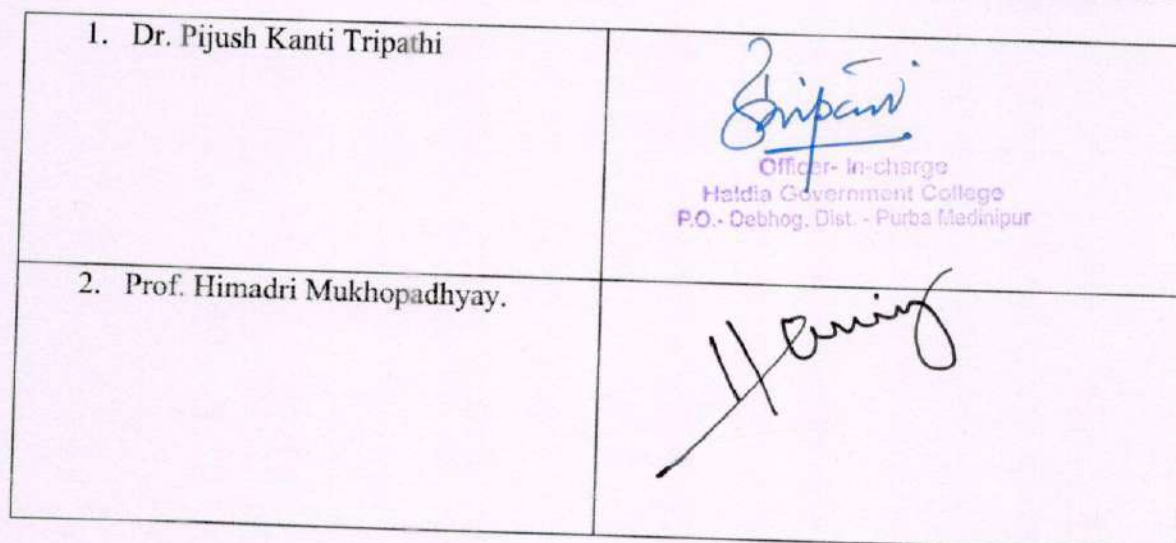 1. Dr. Pijush Kanti Tripathi
Officer- In-charge
Haldia Government College
P.O.- Debhog, Dist. - Purba Medinipur
2. Prof. Himadri Mukhopadhyay.